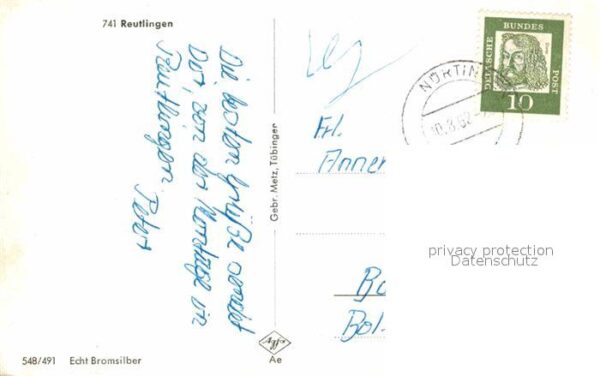 741 Reutlingen
Die besten Grüße sendet
Dir, von der Montage in
Reutlingen Peter
Gebr. Metz, Tübingen
Frl.
Anner
Bol-
DEUTSCHE
BUNDES
POST
10
NÜRTIN
10.3.62
privacy protection
Datenschutz
548/491 Echt Bromsilber
Ae